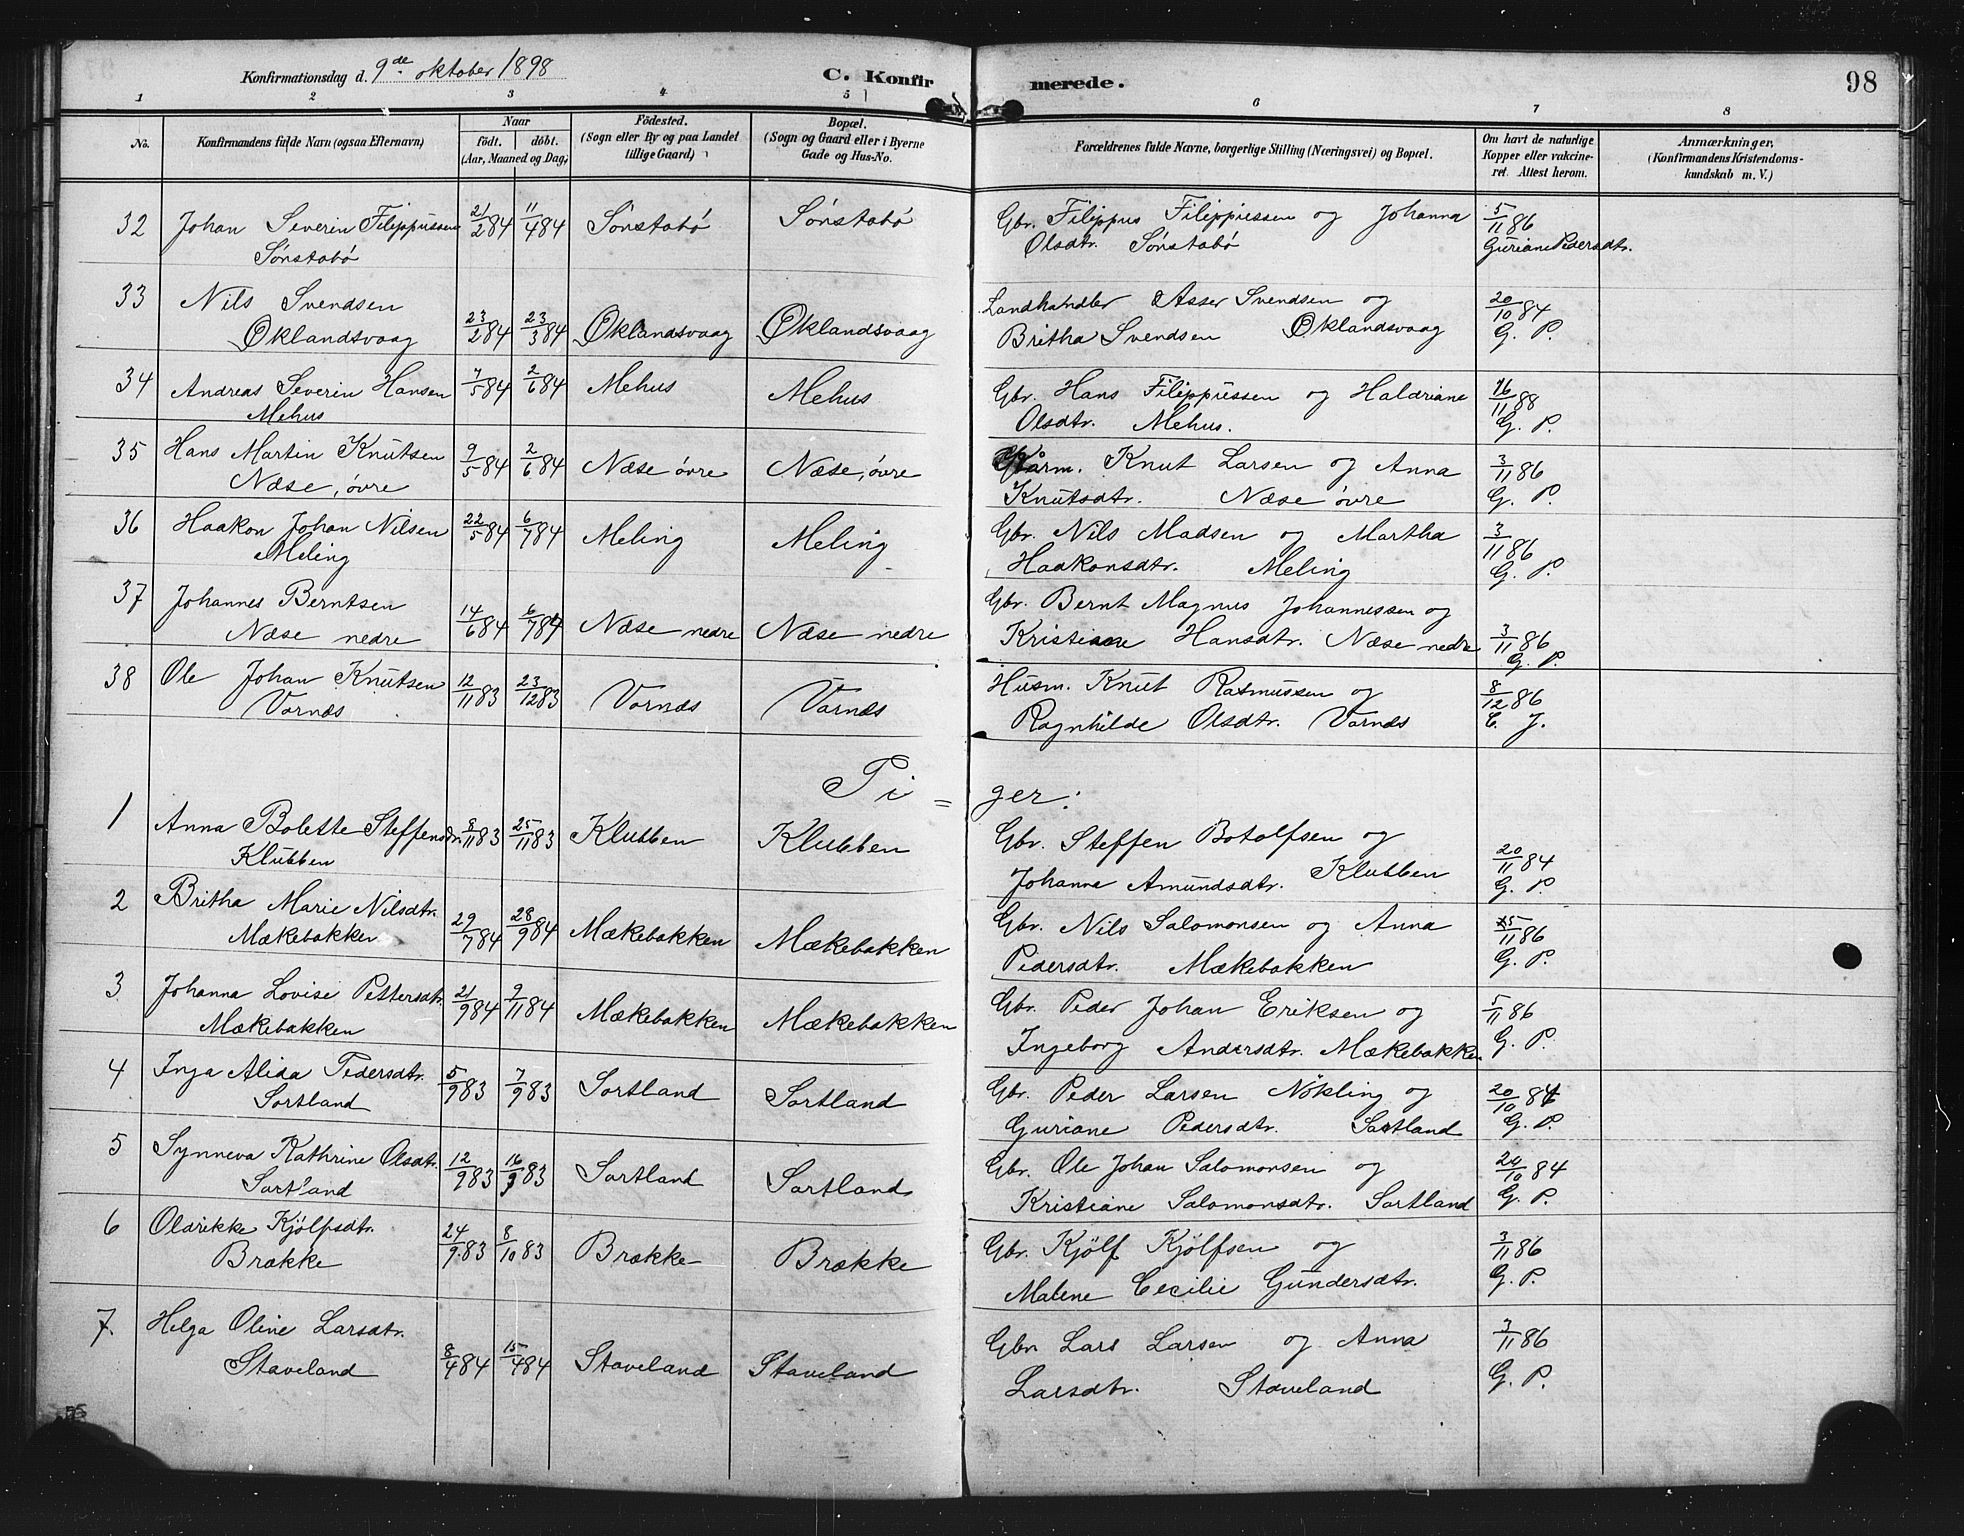 Konfirmationsdag d. 9de oktober 1898 C. Konfirmerede. 98
1 2 3 4 5 6 7 8
No. Konfirmandens fulde Navn (ogsaa Efternavn) Naar født. døbt. (Aar, Maaned og Dag) Fødested. (Sogn eller By og paa Landet tillige Gaard) Bopæl. (Sogn og Gaard eller i Byerne Gade og Hus-No. Forældrenes fulde Navne, borgerlige Stilling (Næringsvei) og Bopæl. Om havt de naturlige Kopper eller vakcineret. Attest herom. Anmærkninger. (Konfirmandens Kristendomskundskab m. V.)
32 Johan Severin Filippussen 21/2 84 11/4 84 Sönstabö Sönstabö Gbr. Filippus Filippussen og Johanna 5/11 86
Sönstabö Olsdtr. Sönstabö Guriane Pedersdtr.
33 Nils Svendsen Landhandler Asser Svendsen og 20/10 84
Øklandsvaag 23/2 84 23/3 84 Øklandsvaag Øklandsvaag Britha Svendsen Øklandsvaag G. P.
34 Andreas Severin Hansen 7/5 84 2/6 84 Mehus Mehus Gbr. Hans Filippussen og Haldriane 16/11 88
Mehus Olsdtr. Mehus. G. P.
35 Hans Martin Knutsen 9/5 84 2/6 84 Næse övre Næse, övre Knut Larsen og Anna 3/11 86
Næse, övre Knutsdtr. Næse övre G. P.
36 Haakon Johan Nilsen 22/5 84 6/7 84 Meling Meling Gbr. Nils Madsen og Martha 3/11 86
Meling Haakonsdtr. Meling G. P.
37 Johannes Berntsen 14/6 84 6/7 84 Næse nedre Næse nedre Gbr. Bernt Magnus Johannessen og
Næse nedre Kristiane Hansdtr. Næse nedre 3/11 86 G. P.
38 Ole Johan Knutsen 12/11 83 23/12 83 Vornæs Vornæs Husm. Knut Rasmussen og 8/12 86
Vornæs Ragnhilde Olsdtr. Vornæs C. J.
Pi=ger:
1 Anna Bolette Steffensdtr. 8/11 83 25/11 83 Klubben Klubben Gbr. Steffen Botolfsen og 20/11 84
Klubben Johanna Amundsdtr. Klubben G. P.
2 Britha Marie Nilsdtr. 29/7 84 28/9 84 Mækebakken Mækebakken Gbr. Nils Salomonsen og Anna 5/11 86
Mækebakken Pedersdtr. Mækebakken G. P.
3 Johanna Lovise Pettersdtr. 21/9 84 9/11 84 Mækebakken Mækebakken Gbr. Peder Johan Eriksen og 5/11 86
Mækebakken Ingeborg Andersdtr. Mækebakken G. P.
4 Inga Alida Pedersdtr. 5/9 83 7/9 83 Sortland Sortland Gbr. Peder Larsen Nökling og 20/10 84
Sortland Guriane Pedersdtr. Sortland G. P.
5 Synneva Kathrine Olsdtr. 12/9 83 16/9 83 Sortland Sortland Gbr. Ole Johan Salomonsen og 20/10 84
Sortland Kristiane Salomonsdtr. Sortland G. P.
6 Oldrikke Kjölfsdtr. 24/9 83 8/10 83 Brække Brække Gbr. Kjölf Kjölfsen og 3/11 86
Brække Malene Cecilie Gundersdtr. G. P.
7. Helga Oline Larsdtr. 8/4 84 15/4 84 Staveland Staveland Gbr. Lars Larsen og Anna 3/11 86
Staveland Larsdtr. Staveland G. P.